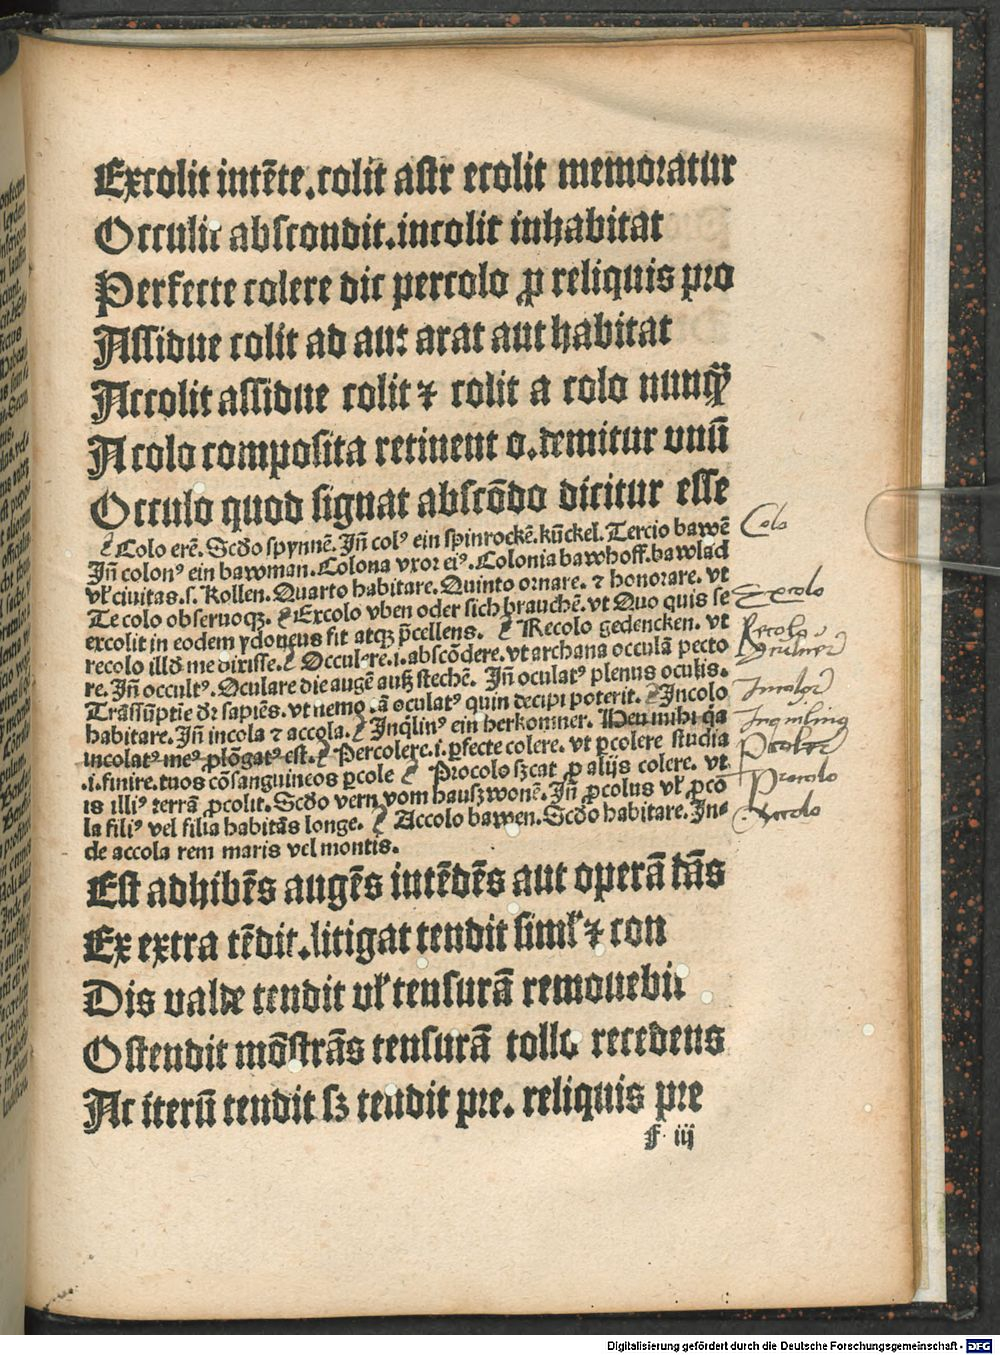 Excolit intēte.colit astr ecolit memoratur
Occulit abscondit.incolit inhabitat
Perfecte colere dic percolo ꝓ reliquis pro
Assidue colit ad aut arat aut habitat
Accolit assidue colit ⁊ colit a colo nunꝙ̄
A colo composita retinent o.demitur unū
Occulo quod signat abscōdo dicitur esse
¶ Colo erē. Scd̄o spynnē. Jn̄ colꝰ ein spinrockē. kūckel. Tercio bawē
Jn̄ colonꝰ ein bawman. Colona vxor eiꝰ. Colonia bawhoff. bawlād
vl̄ ciuitas. s. Kollen. Quarto habitare. Quinto ornare. ⁊ honorare. vt
Te colo obseruoqꝫ. ¶ Excolo vben oder sich brauchē. vt Duo quis se
excolit in eodem ydoneus fit atqꝫ p̄cellens. ¶ Recolo gedencken. vt
recolo illd̄ me dixisse. ¶ Occulere. i. abscōdere. vt archana occulā pecto
re. Jn̄ occultꝰ. Oculare die augē auß stechē. Jn̄ oculatꝰ plenus oculis.
Trāssūptiē dr̄ sapiēs. vt nemo tā oculatꝰ quin decipi poterit. ¶ Jncolo
habitare. Jn̄ incola ⁊ accola. ¶ Jnq̄linꝰ ein herkommer. Heu mihi q̄a
incolatꝰ meꝰ ꝓlōgatꝰ est. ¶ Percolere. i. ꝑfecte colere. vt ꝑcolere studia
.i. finire. tuos cōsanguineos ꝑcole ¶ Procolo sꝫcat ꝓ alijs colere. vt
is illiꝰ terrā ꝓcolit. Scd̄o vern vom hauſz wonē. Jn̄ ꝓcolus vl̄ ꝓco
la filiꝰ vel filia habitās longe. ¶ Accolo bawen. Scd̄o habitare. Jn⸗
de accola rem maris vel montis.
Est adhibēs augēs intēdēs aut operā dās
Ex extra tēdit.litigat tendit siml̄ ⁊ con
Dis valde tendit vl̄ tensurā remouebit
Ostendit mōstrās tensurā tollo recedens
Ac iterū tendit sꝫ tendit pre. reliquis pre
f iij
Colo
Excolo
Recolo
Incolo
Procolo
Digitalisierung gefördert durch die Deutsche Forschungsgemeinschaft - DFG